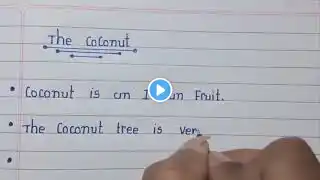 The Coconut
• Coconut is an fruit.
• The Coconut tree is ver
•